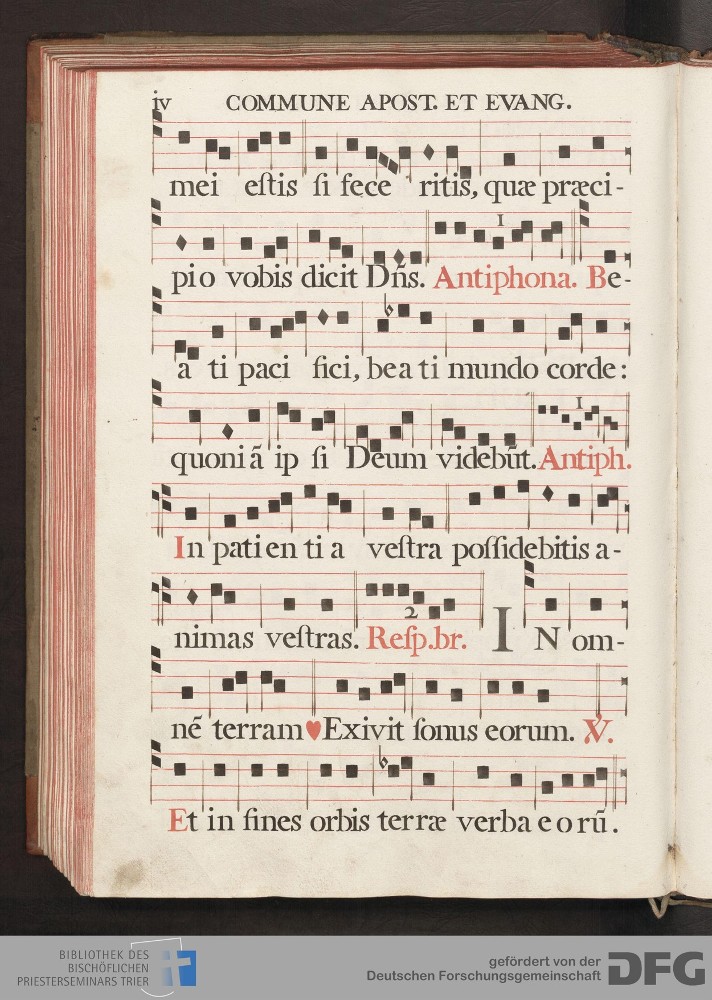 iv COMMUNE APOST. ET EVANG.
mei eſtis ſi fece ritis, quæ præci-
pio vobis dicit Dñs. Antiphona. Be-
1
a ti paci fici, beati mundo corde:
quoniã ip ſi Deum videbũt. Antiph.
1
In patien ti a veſtra poſſidebitis a-
nimas veſtras. Reſp.br. IN om-
2
nẽ terram♥Exivit ſonus eorum. ℣.
Et in fines orbis terræ verba eorũ.
BIBLIOTHEK DES
BISCHÖFLICHEN
PRIESTERSEMINARS TRIER
gefördert von der
Deutschen Forschungsgemeinschaft DFG